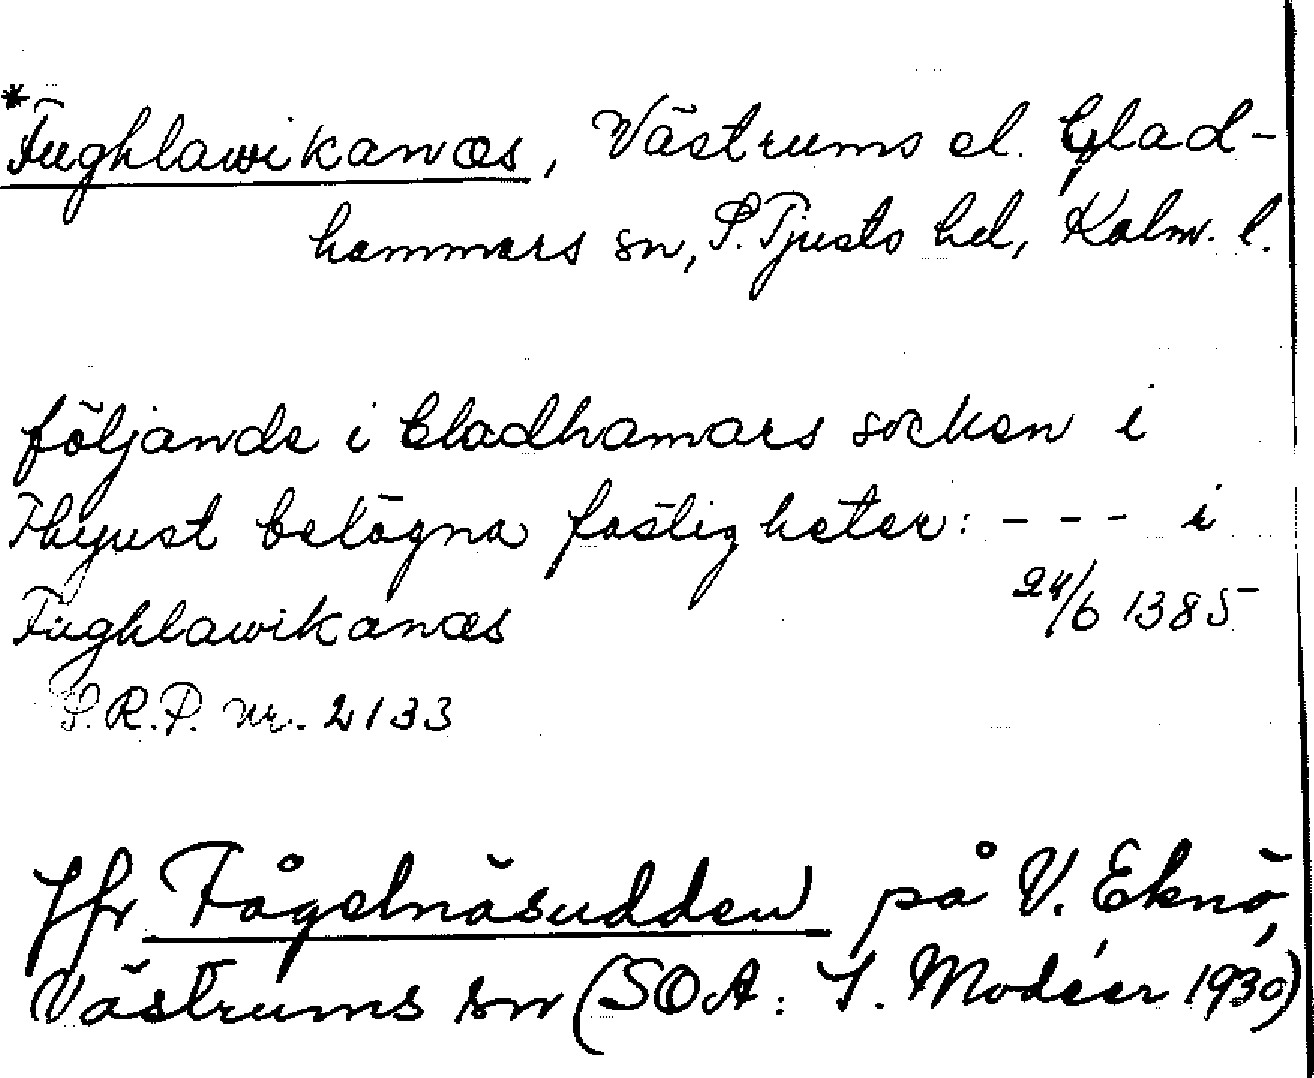 *Fughlawikanæs, Västrums el. Glad-
hammars sn, S. Tjusts hd, Kalm. l.
följande i Gladhamars socken i
Thyust belägna fastigheter: - - - i
Fughlawikanæs 24/6 1385
S.R.P. nr. 2133
Jfr Fågelnäsudden på V. Eknö,
Västrums sn (SOA: I. Modéer 1930)